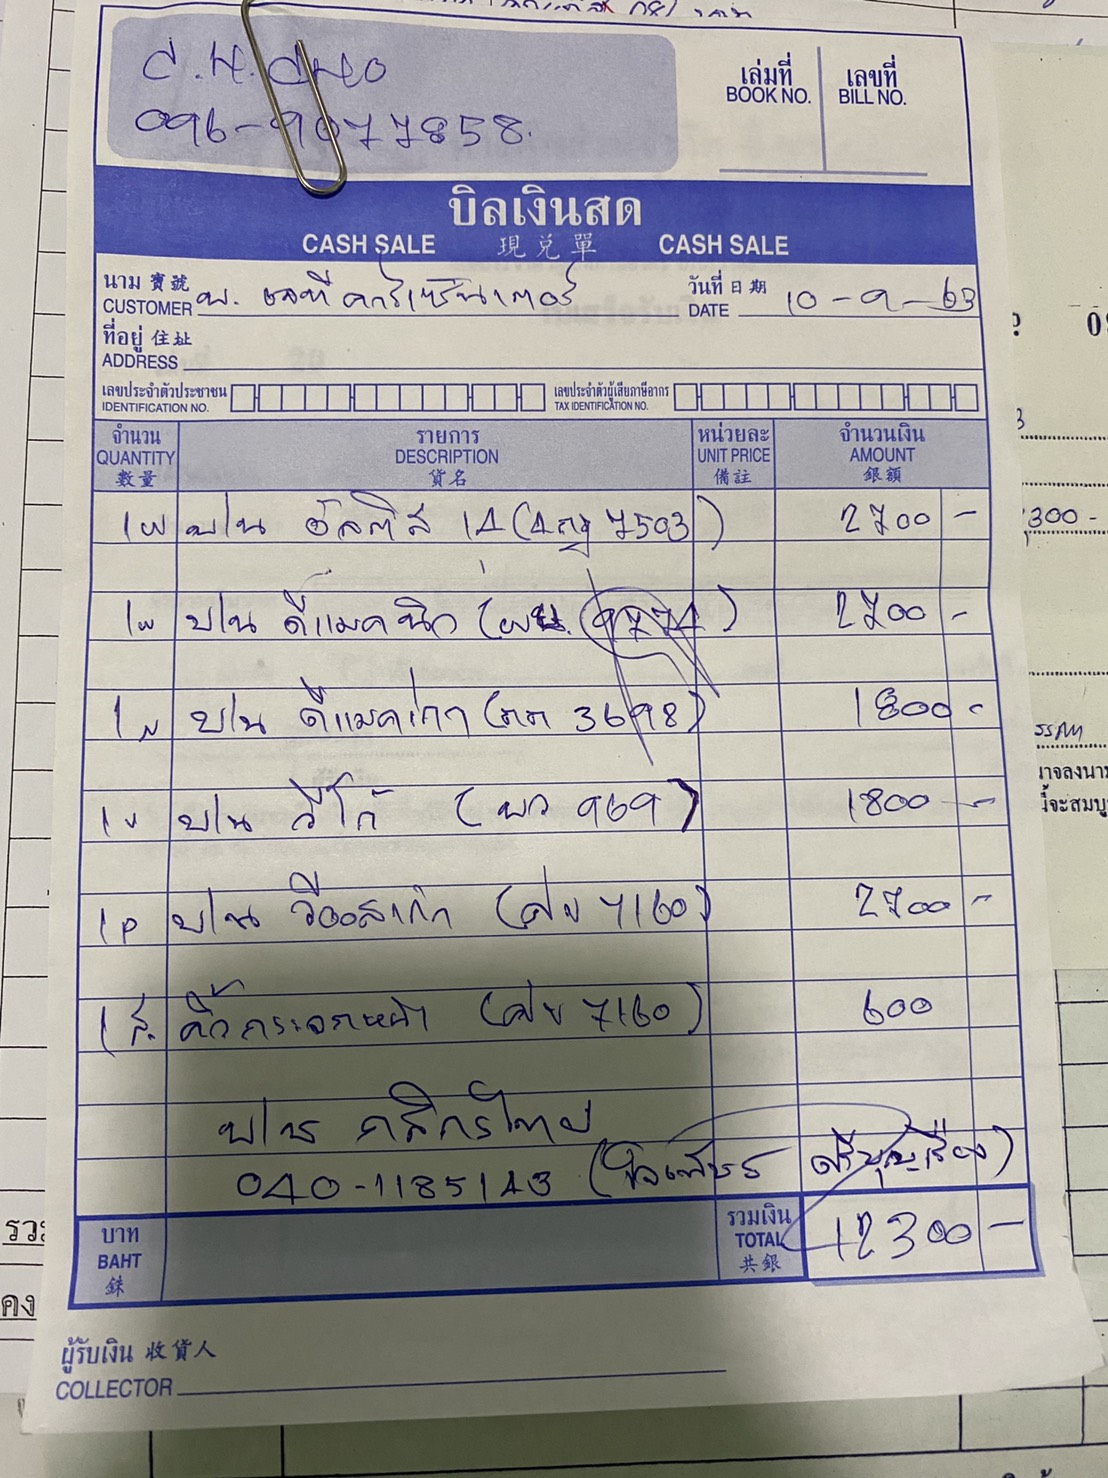 096-9077858.
เล่มที่ เลขที่
BOOK NO. BILL NO.
บิลเงินสด
CASH SALE 現兑單 CASH SALE
นาม 寳號 วันที่ 日期
CUSTOMER DATE 10-9-63
ที่อยู่ 住址
ADDRESS
เลขประจำตัวประชาชน เลขประจำตัวผู้เสียภาษีอากร
IDENTIFICATION NO. TAX IDENTIFICATION NO.
จำนวน รายการ หน่วยละ จำนวนเงิน
QUANTITY DESCRIPTION UNIT PRICE AMOUNT
數量 貨名 備註 銀額
1 บ/น อัลติส 14 (4กฎ 7503) 2700 -
1 บ/น ดีแมคนิว ( 9774) 2700 -
1 บ/น ดีแมคเก่า (กก 3698) 1800 -
1 บ/น วีโก้ (ผว 969) 1800 -
1 บ/น วีออสเก่า (ศข 7160) 2700 -
1 คิ้วกระจกหน้า (ศข 7160) 600
บ/ช กสิกรไทย
040-1185143 ( ศรีบุญเรือง)
บาท รวมเงิน
BAHT TOTAL 12300 -
銖 共銀
ผู้รับเงิน 收貨人
COLLECTOR
300 -
รว
คง